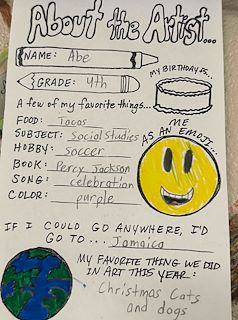 About the Artist...
NAME: Abe
MY BIRTHDAY IS...
GRADE: 4th
A few of my favorite things...
FOOD: Tacos
ME
AS AN EMOJI...
SUBJECT: Social Studies
HOBBY: soccer
BOOK: Percy Jackson
SONG: celebration
COLOR: purple
IF I COULD GO ANYWHERE, I'D
GO TO... Jamaica
MY FAVORITE THING WE DID
IN ART THIS YEAR:
Christmas Cats
and dogs